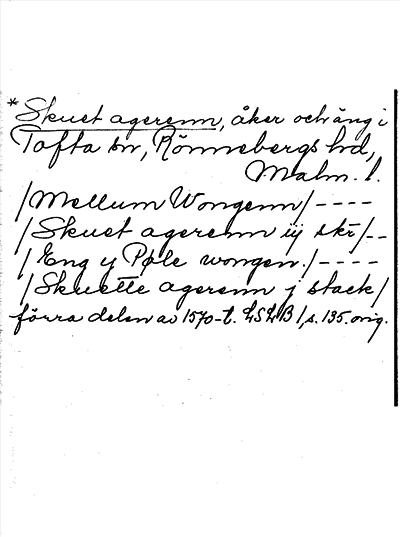 *Skuet agerenn, åker och äng i
Tofta sn, Rönnebergs hd,
Malm. l.
/Mellum Wongenn/----
/Skuet agerenn iij skr/--
/Eng y Pøle wongen./----
/Skuette agerenn j stack/
förra delen av 1570-t. LSLB 1, s. 135. orig.